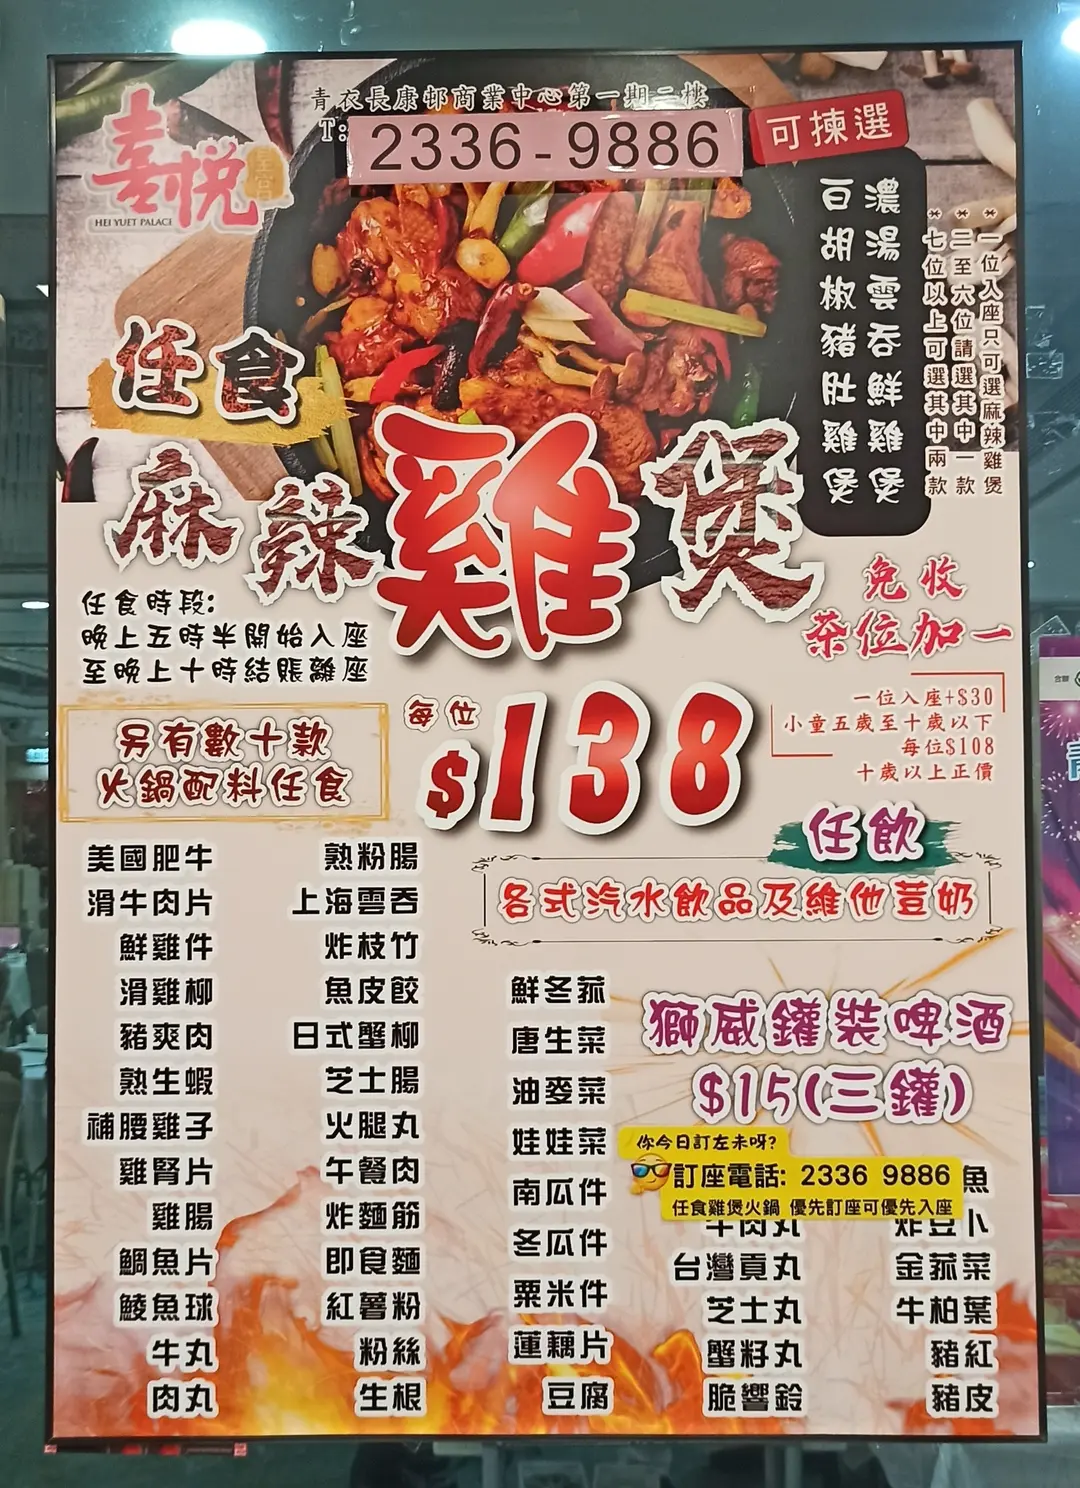 青衣長康邨商業中心第一期二樓
T: 2336-9886
喜悅
皇宮
HEI YUET PALACE
可揀選
濃湯雲吞鮮雞煲
白胡椒豬肚雞煲
*一位入座只可選麻辣雞煲
*二至六位請選其中一款
*七位以上可選其中兩款
任食
麻辣雞煲
任食時段:
晚上五時半開始入座
至晚上十時結賬離座
免收
茶位加一
每位
$138
一位入座+$30
小童五歲至十歲以下
每位$108
十歲以上正價
另有數十款
火鍋配料任食
任飲
各式汽水飲品及維他荳奶
美國肥牛
滑牛肉片
鮮雞件
滑雞柳
豬爽肉
熟生蝦
補腰雞子
雞腎片
雞腸
鯛魚片
鯪魚球
牛丸
肉丸
熟粉腸
上海雲吞
炸枝竹
魚皮餃
日式蟹柳
芝士腸
火腿丸
午餐肉
炸麵筋
即食麵
紅薯粉
粉絲
生根
鮮冬菰
唐生菜
油麥菜
娃娃菜
南瓜件
冬瓜件
粟米件
蓮藕片
豆腐
獅威罐裝啤酒
$15(三罐)
你今日訂左未呀?
訂座電話: 2336 9886
任食雞煲火鍋 優先訂座可優先入座
牛肉丸
台灣貢丸
芝士丸
蟹籽丸
脆響鈴
魚
炸豆卜
金菰菜
牛柏葉
豬紅
豬皮